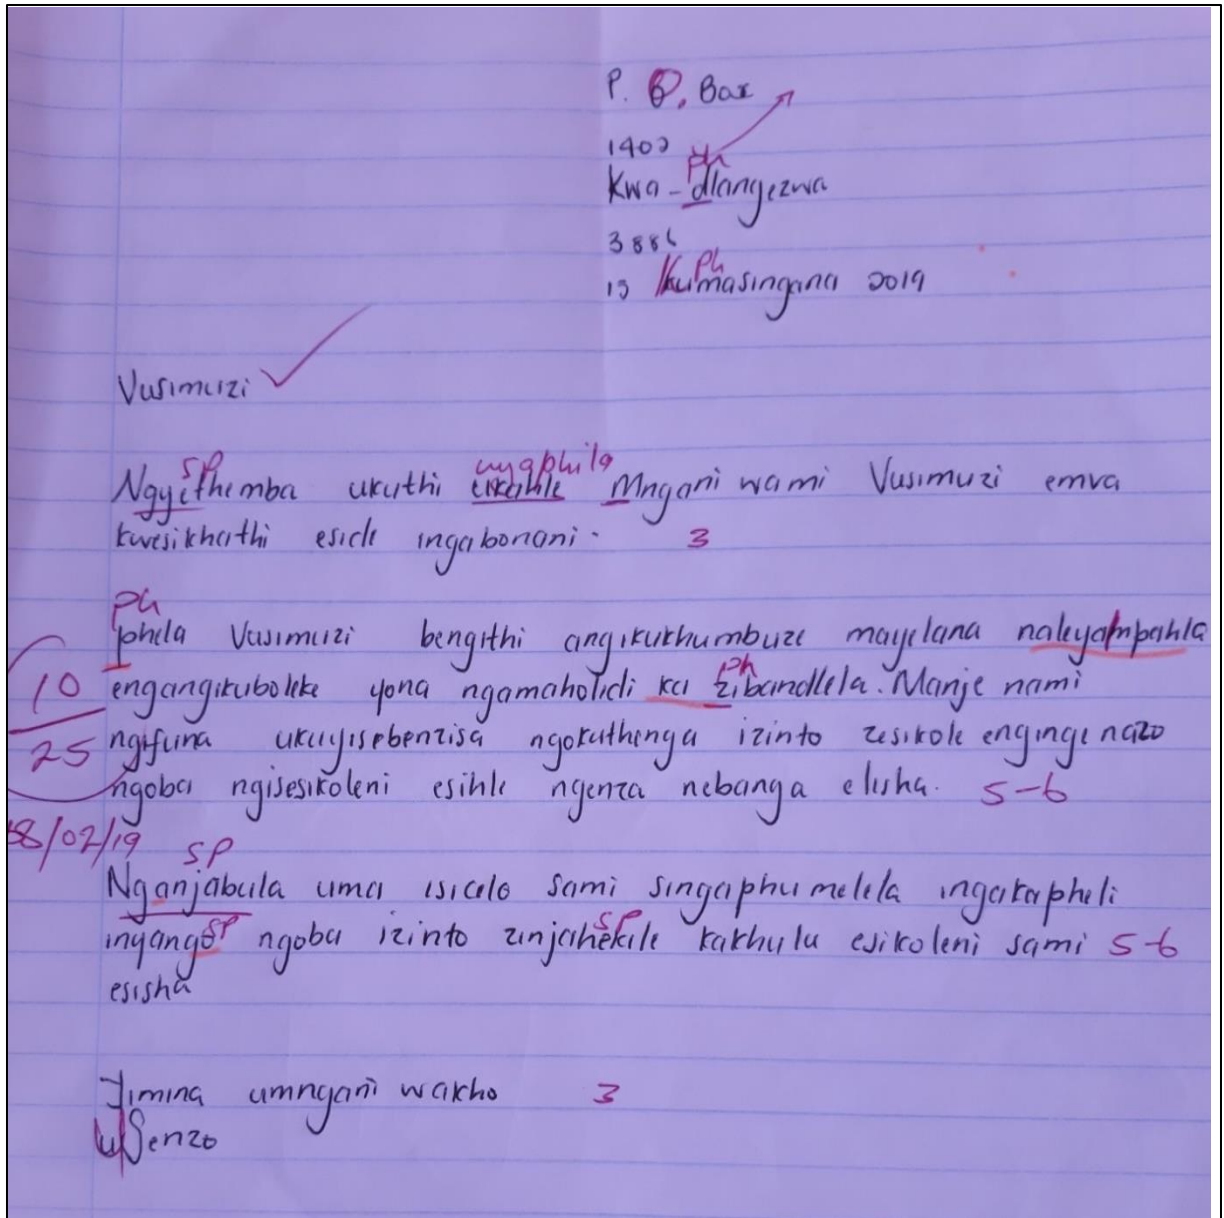 P. O. Box
1402
ph
Kwa-dlangezwa
3886
ph
13 Kumasingana 2019
Vusimuzi
sp uyaphila
Ngyethemba ukuthi Mngani wami Vusimuzi emva
kwesikhathi eside singabonani. 3
ph
phela Vusimuzi bengithi angikukhumbuze mayelana naleyampahla
ph
10 engangikuboleke yona ngamaholidi ka zibandlela. Manje nami
25 ngifuna ukuyisebenzisa ngokuthenga izinto zesikole engingenazo
ngoba ngisesikoleni esihle ngenza nebanga elisha. 5-6
8/02/19 SP
Nganjabula uma isicelo sami singaphumelela ingakapheli
sp sp
inyanga ngoba izinto zinjahekile kakhulu esikoleni sami 5-6
esisha
Yimina umngani wakho 3
uSenzo